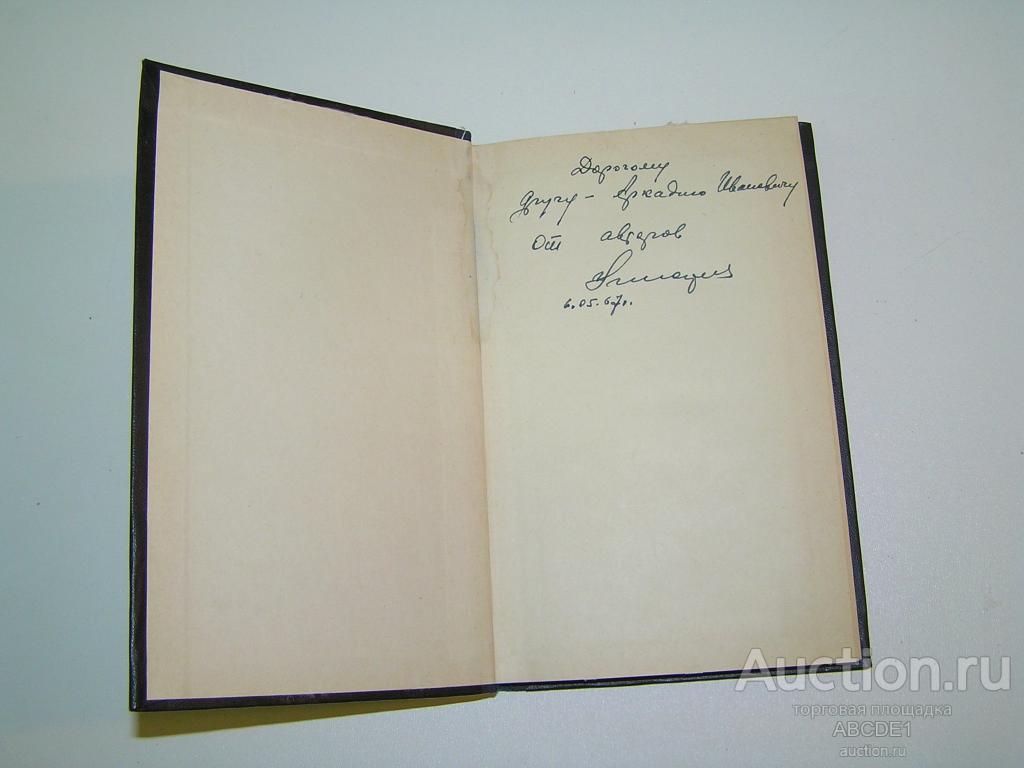 Дорогому
другу - Аркадию Ивановичу
от авторов
6.05.67г.
Auction.ru
торговая площадка
ABCDE1
auction.ru